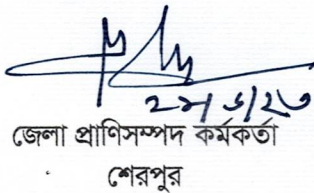 জেলা প্রাণিসম্পদ কর্মকর্তা
শেরপুর